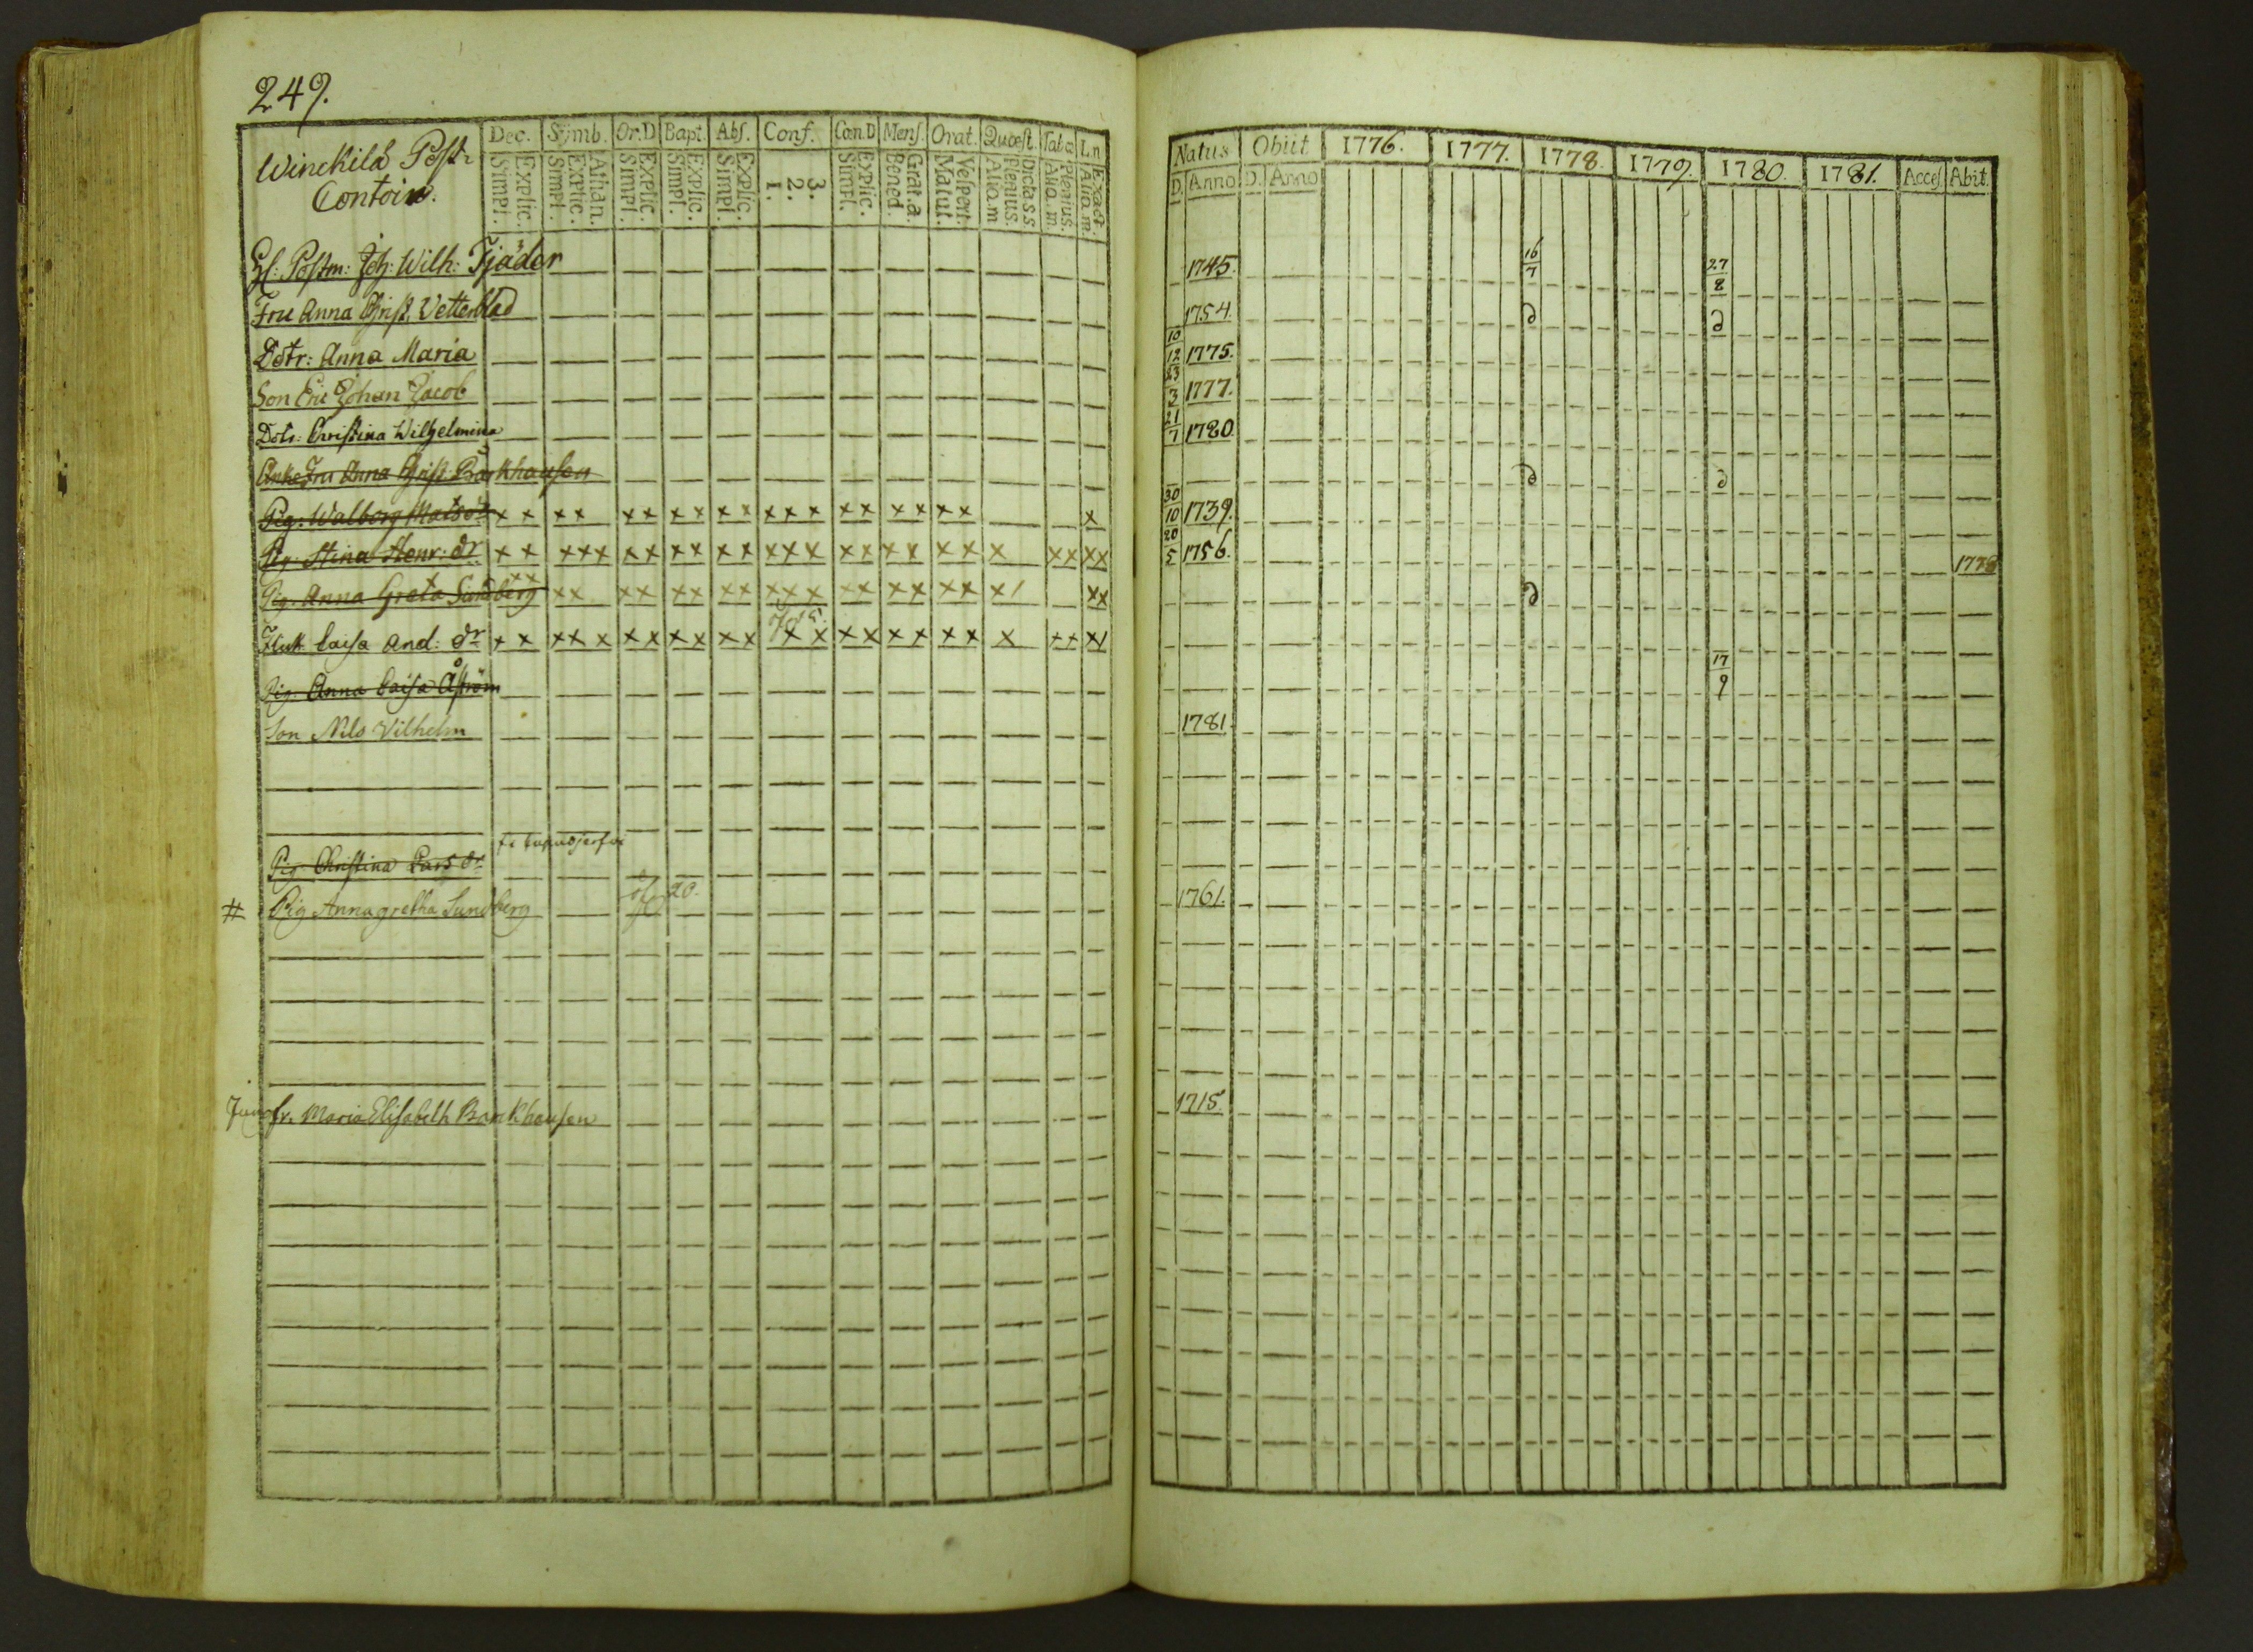 249.
Winckilä Post-
Contoir.
Dec. Symb. Or.D Bapt. Abs. Conf. Cœn.D Mens. Orat. Quæst. Tab.œ Ln
Explic. Simpl. Athan. Explic. Simpl. Explic. Simpl. Explic. Simpl. Explic. Simpl. 3. 2. 1. Explic. Simpl. Grat.a. Bened. Vespert. Matut. Dicta s.s. Plenius. Aliq.m Plenius. Aliq.m Exact. Aliq.m
Natus Obiit 1776. 1777. 1778. 1779. 1780. 1781. Acces. Abit.
D. Anno D. Anno
Postm: Joh: Wilh: Tjäder 1745. 16/7 27/8
Fru Anna Christ. Vetterblad 1754. d d
Dotr: Anna Maria 10/12 1775.
Son Eric Johan Jacob 23/3 1777.
Dotr: Christina Wilhelmina 21/7 1780.
Enke Fru Anna Christ. Barkhausen d d
Pig: Walborg Matsdr x x x x x x x x x x x x x x x x x x x x 30/10 1739.
Pig. Stina Henr: dr x x x x x x x x x x x x x x x x x x x x x x x x x 20/5 1756. 1778
Pig. Anna Greta Sundberg x x x x x x x x x x x x x x x x x x x x x / x x d
Caisa And: dr x x x x x x x x x x x x x x x x x x x x x x x x x
Pig. Anna Caisa Åström 17/9
Son Nils Vilhelm 1781.
Pig Christina Larsdr
# Pig Annagretha Sundberg 20. 1761.
Jungfr. Maria Elisabeth Barkhausen 1715.